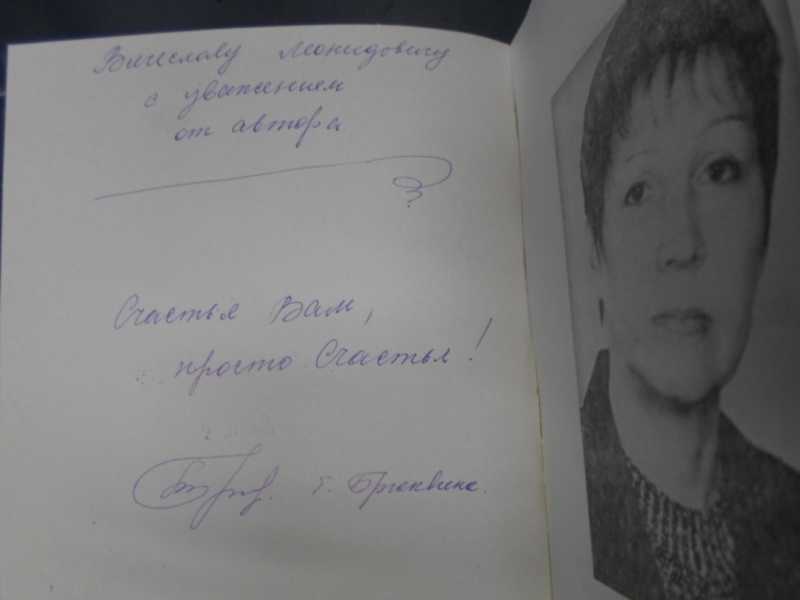 Вячеславу Леонидовичу
с уважением
от автора
Счастья Вам,
просто Счастья!
Т.